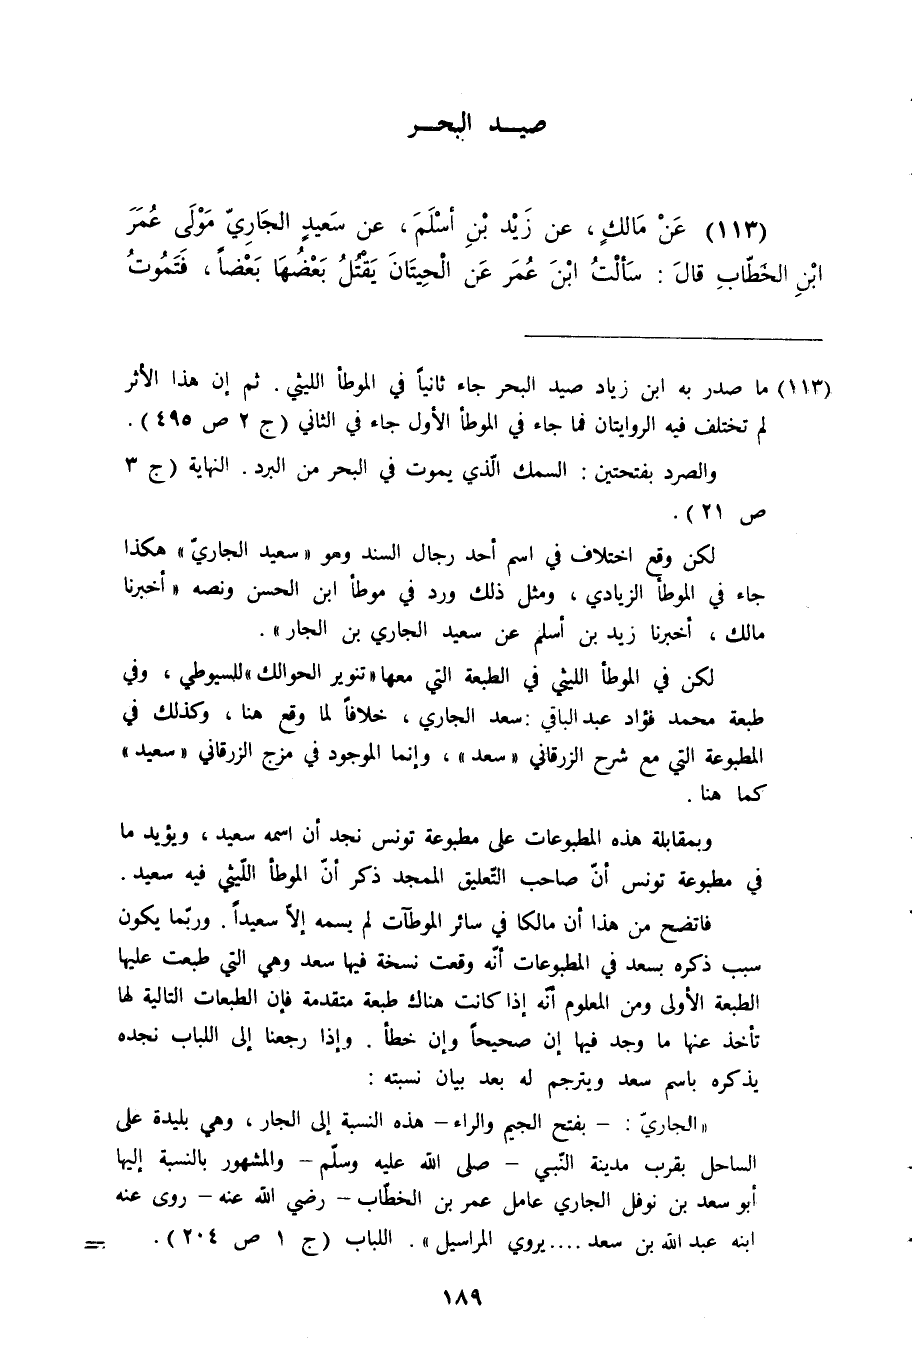 صيـد البحـر
(١١٣) عَنْ مَالكٍ، عن زَيْد بْنِ أسْلَمَ، عن سَعيدٍ الجَارِيّ مَوْلَى عُمَرَ
ابْنِ الخَطّابِ قالَ : سَألْتُ ابْنَ عُمَرَ عَن الْحِيتَانَ يَقْتُلُ بَعْضُهَا بَعْضاً، فَتَمُوتُ
(١١٣) ما صدر به ابن زياد صيد البحر جاء ثانياً في الموطأ الليثي. ثم إن هذا الأثر
لم تختلف فيه الروايتان فما جاء في الموطأ الأول جاء في الثاني (ج ٢ ص ٤٩٥).
والصرد بفتحتين : السمك الّذي يموت في البحر من البرد. النهاية (ج ٣
ص ٢١).
لكن وقع اختلاف في اسم أحد رجال السند وهو «سعيد الجاريّ» هكذا
جاء في الموطأ الزيادي، ومثل ذلك ورد في موطأ ابن الحسن ونصه «أخبرنا
مالك، أخبرنا زيد بن أسلم عن سعيد الجاري بن الجار».
لكن في الموطأ الليثي في الطبعة التي معها«تنوير الحوالك»للسيوطي، وفي
طبعة محمد فؤاد عبد الباقي :سعد الجاري، خلافاً لما وقع هنا، وكذلك في
المطبوعة التي مع شرح الزرقاني «سعد»، وإنما الموجود في مزج الزرقاني «سعيد»
كما هنا.
وبمقابلة هذه المطبوعات على مطبوعة تونس نجد أن اسمه سعيد، ويؤيد ما
في مطبوعة تونس أنّ صاحب التّعليق الممجد ذكر أنّ الموطأ اللّيثي فيه سعيد.
فاتضح من هذا أن مالكا في سائر الموطآت لم يسمه إلاّ سعيداً. وربّما يكون
سبب ذكره بسعد في المطبوعات أنّه وقعت نسخة فيها سعد وهي التي طبعت عليها
الطبعة الأولى ومن المعلوم أنّه إذا كانت هناك طبعة متقدمة فإن الطبعات التالية لها
تأخذ عنها ما وجد فيها إن صحيحاً وإن خطأ. وإذا رجعنا إلى اللباب نجده
يذكره باسم سعد ويترجم له بعد بيان نسبته :
«الجاريّ : – بفتح الجيم والراء– هذه النسبة إلى الجار، وهي بليدة على
الساحل بقرب مدينة النّبي – صلى الله عليه وسلّم – والمشهور بالنسبة إليها
أبو سعد بن نوفل الجاري عامل عمر بن الخطّاب – رضي الله عنه – روى عنه
ابنه عبد الله بن سعد .... يروي المراسيل». اللباب (ج ١ ص ٢٠٤).
=
١٨٩